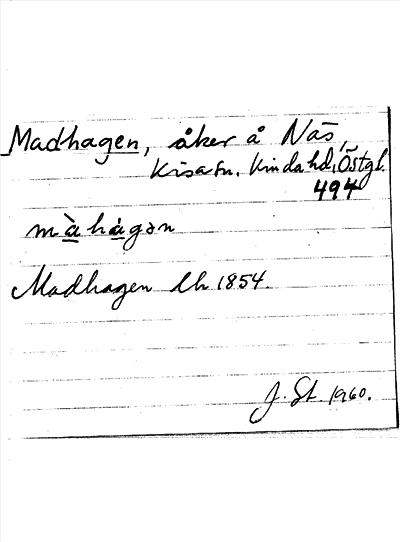 Madhagen, åker å Näs,
Kisa sn. Kinda hd, Östgl.
494
màhàgən
Madhagen Lh 1854.
J. St. 1960.